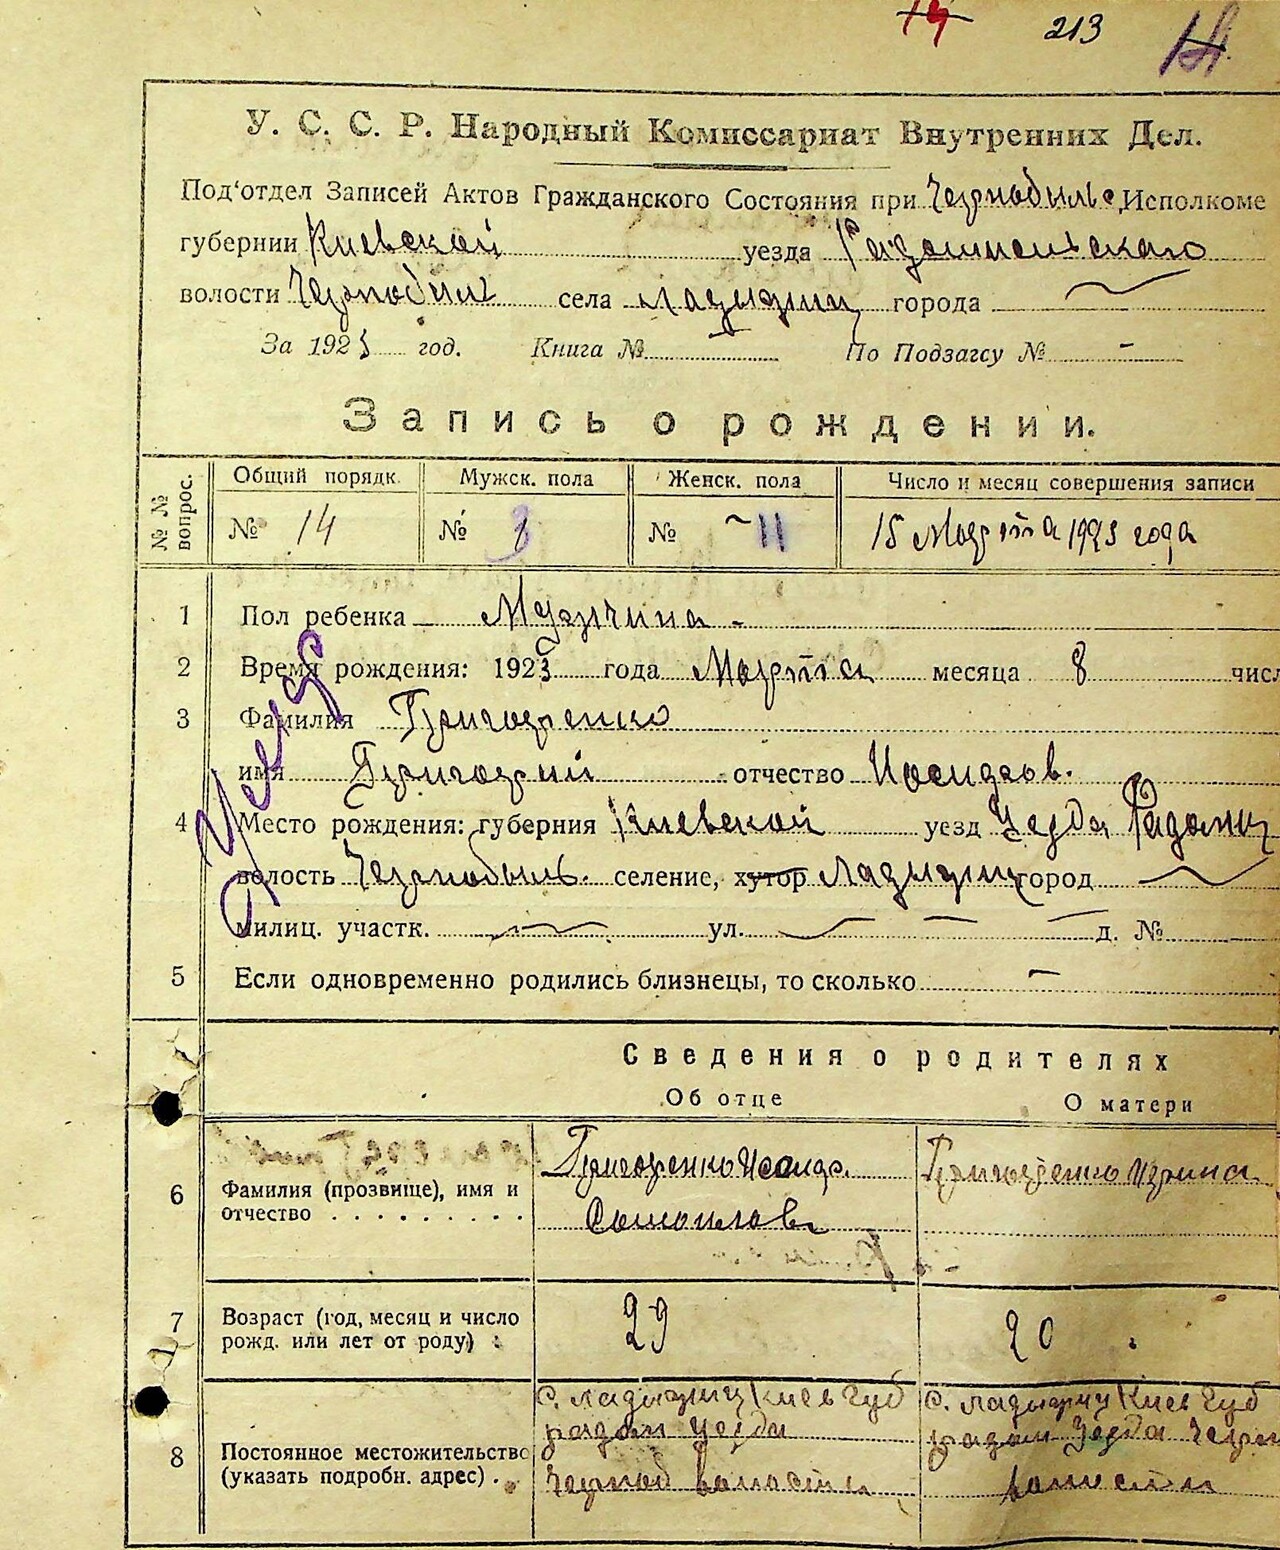 14 213 14
У. С. С. Р. Народный Комиссариат Внутренних Дел.
Под'отдел Записей Актов Гражданского Состояния при Чернобыльс. Исполкоме
губернии Киевской уезда Радомысльского
волости Чернобыл села Ладыжич города
За 1923 год. Книга № По Подзагсу № -
Запись о рождении.
№ № вопрос. Общий порядк. Мужск. пола Женск. пола Число и месяц совершения записи
№ 14 № 3 № 11 15 Марта 1923 года
1 Пол ребенка Мужчина -
2 Время рождения: 1923 года Марта месяца 8 числ
3 Фамилия Григоренко
имя Григорий отчество
4 Место рождения: губерния Киевской уезд Уезда Радомы
волость Чернобыль. селение, хутор Ладыжич город
милиц. участк. ул. д. №
5 Если одновременно родились близнецы, то сколько -
Умер
Сведения о родителях
Об отце О матери
6 Фамилия (прозвище), имя и отчество
Григоренко
Григоренко Ирина
7 Возраст (год, месяц и число рожд. или лет от роду) 29 20
8 Постоянное местожительство (указать подробн. адрес)
С. Ладыжич Киев Губ
радом Уезда
Черноб волости
С. Ладыжич Киев Губ
радом Уезда Черн
волости